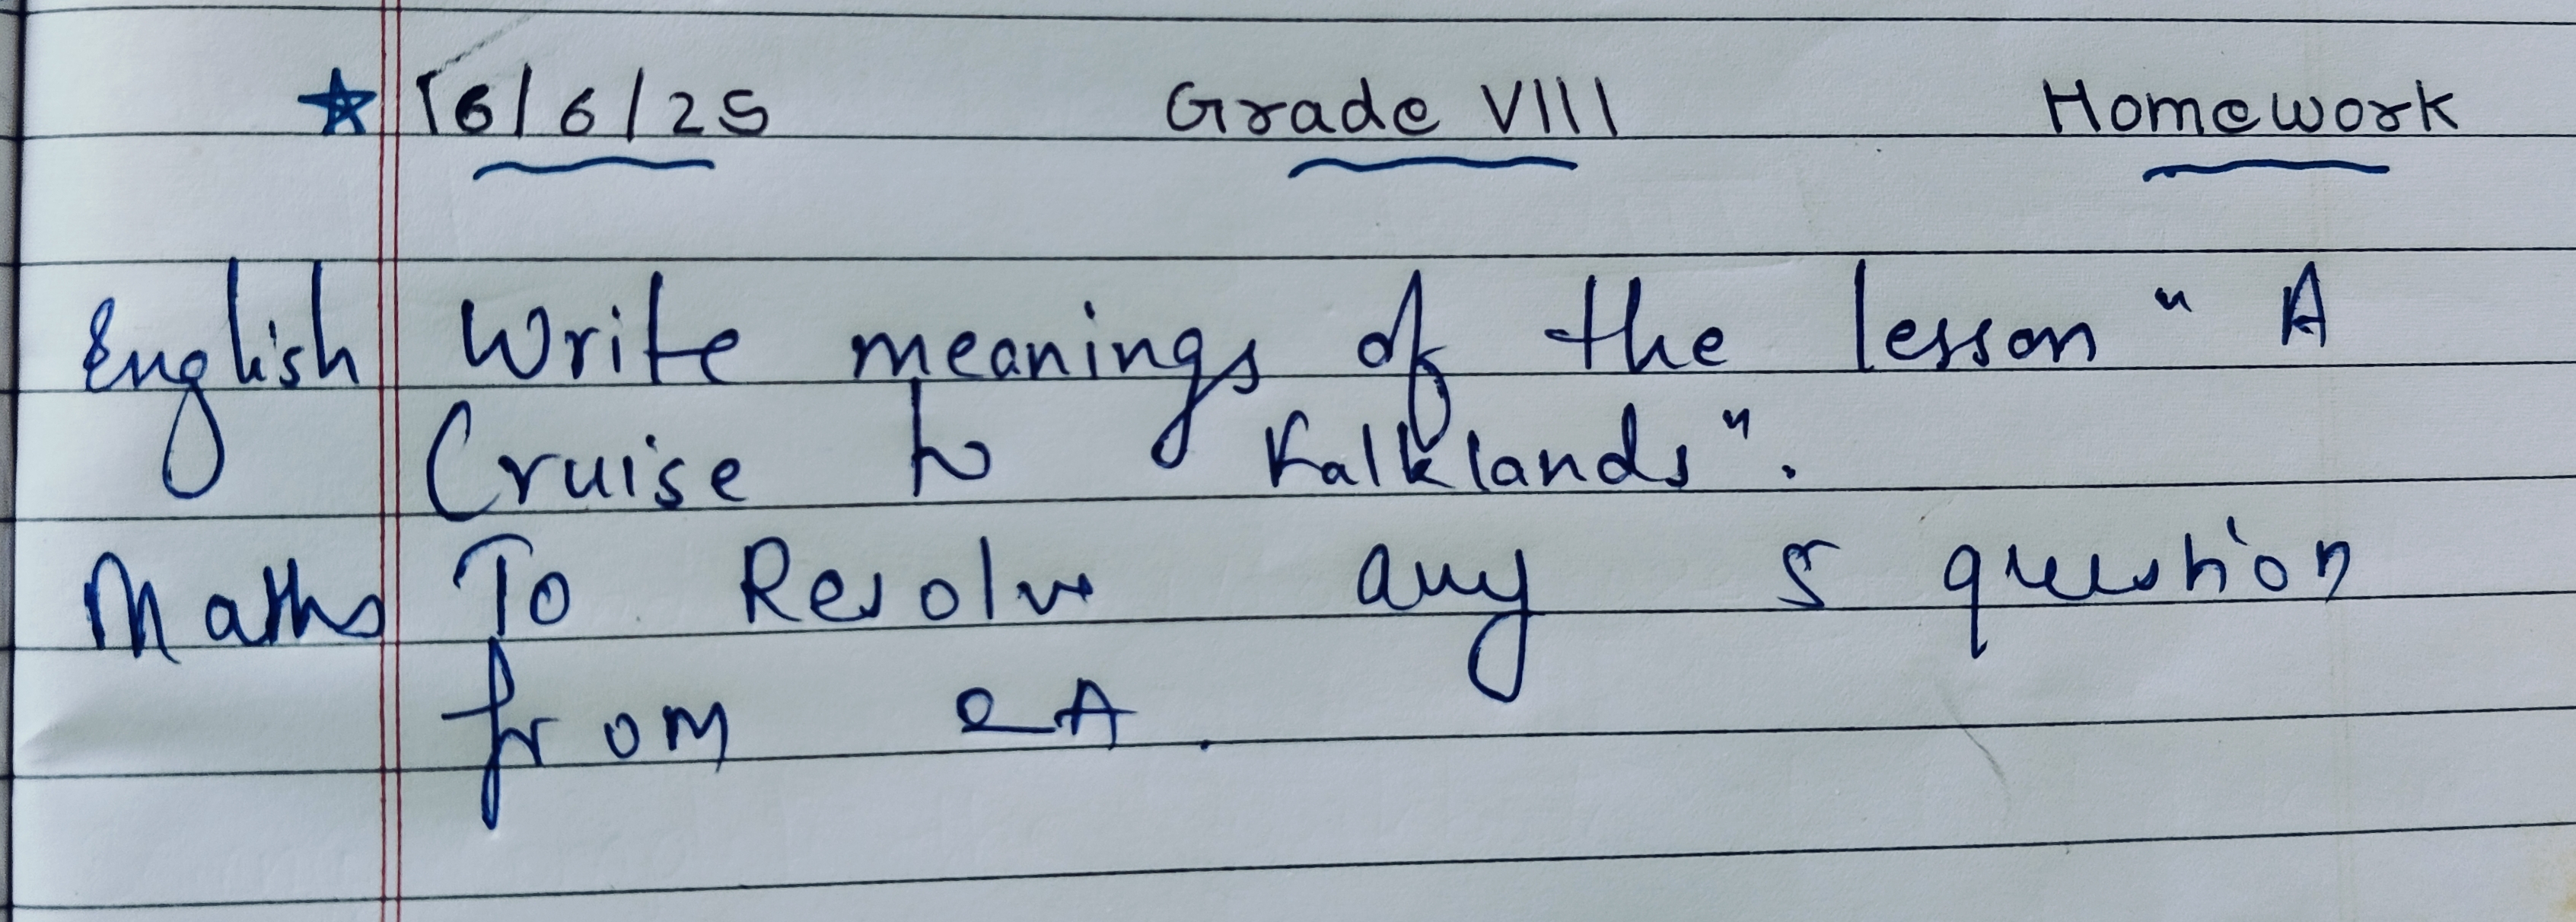 ★ 16/6/25 Grade VIII Homework
English Write meanings of the lesson " A
Cruise to Kalklands".
Maths To Resolve any 5 question
from 2A.